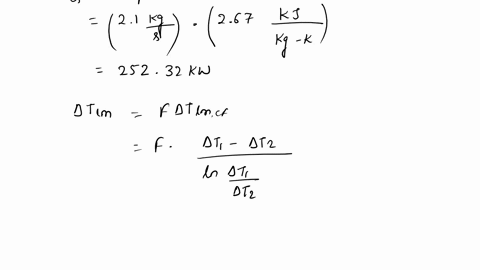 = (2.1 kg/s) · (2.67 kJ/kg-K)
= 252.32 KW
ΔTlm = F ΔTlm,cf
= F · (ΔT1 - ΔT2) / (ln ΔT1/ΔT2)